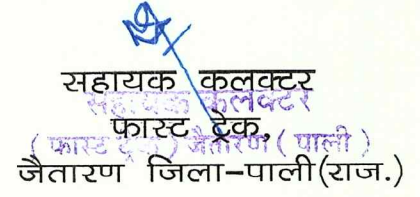 सहायक कलक्टर
सहायक कलेक्टर
फास्ट ट्रेक,
( फास्ट ट्रेक ) जैतारण ( पाली )
जैतारण जिला-पाली(राज.)